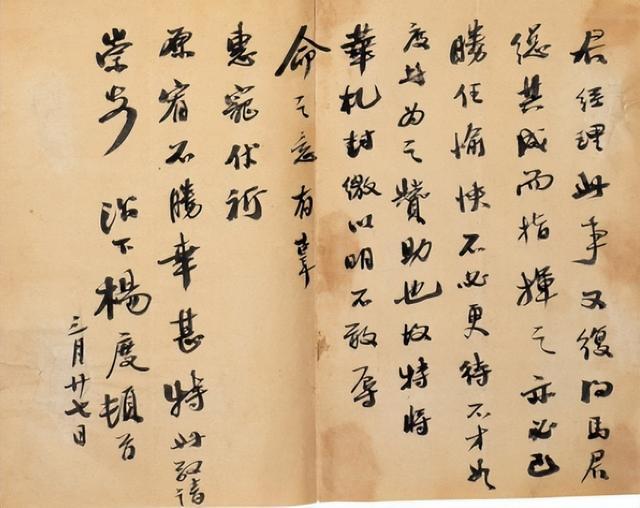 君經理此事又復馬君
總其成而指揮之亦必已
勝任愉快不必更待不才如
度者為之贊助也故特將
華札封繳以明不敢辱
命之意有辜
惠寵伏祈
原宥不勝幸甚特此敬請
崇安 治下楊度頓首
三月廿七日